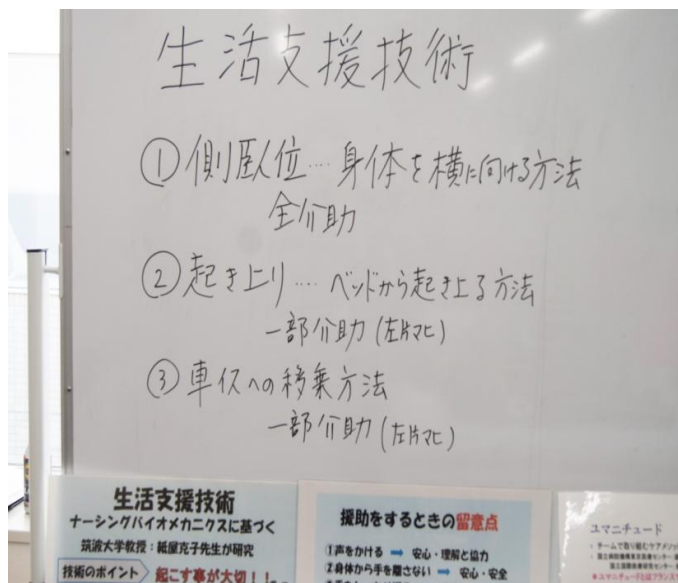 生活支援技術
①側臥位‥‥身体を横に向ける方法
全介助
②起き上り‥‥ベッドから起き上る方法
一部介助(左片マヒ)
③車イスへの移乗方法
一部介助(左片マヒ)
生活支援技術
ナーシングバイオメカニクスに基づく
筑波大学教授:紙屋克子先生が研究
技術のポイント
起こす事が大切!!
援助をするときの留意点
①声をかける ➡ 安心・理解と協力
②身体から手を離さない ➡ 安心・安全
ユマニチュード